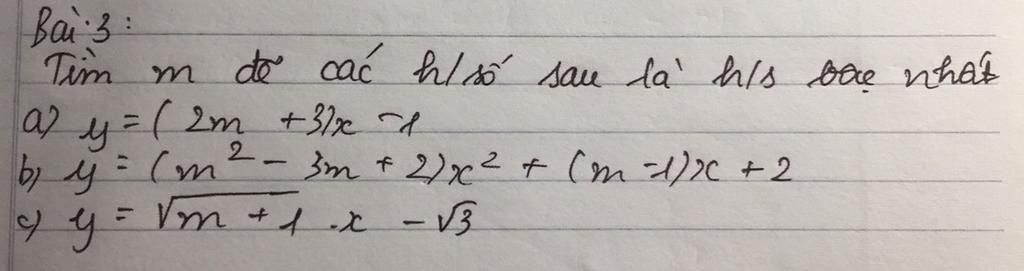 Bài 3:
Tìm m để các h/số sau là h/s bậc nhất
a) y = (2m + 3)x - 1
b) y = (m² - 3m + 2)x² + (m - 1)x + 2
c) y = √(m + 1) . x - √3